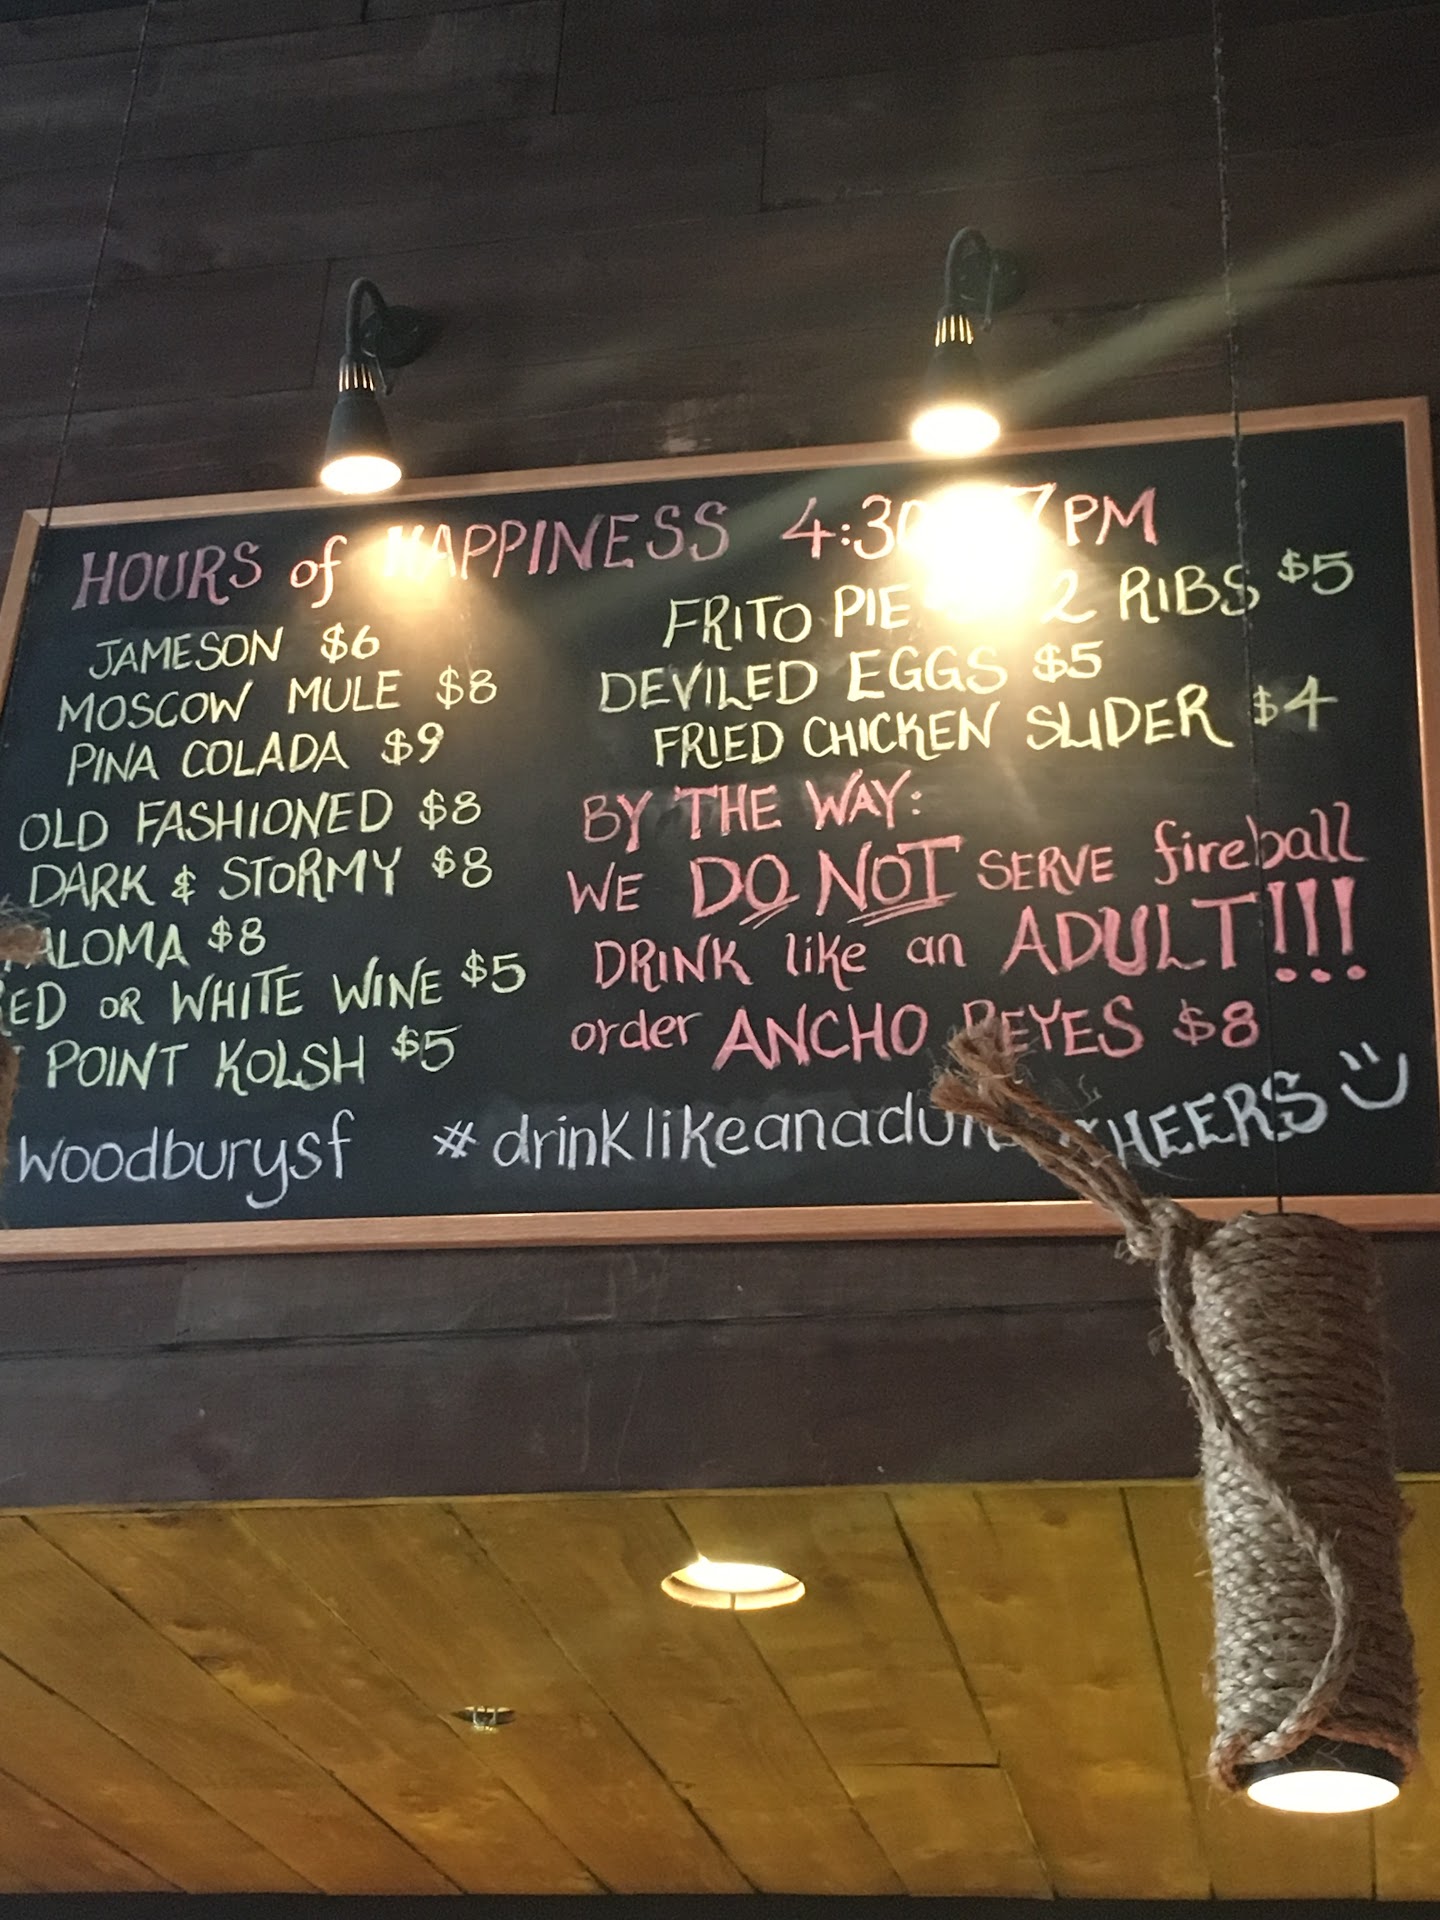 HOURS of HAPPINESS 4:30 7PM
JAMESON $6
MOSCOW MULE $8
PINA COLADA $9
OLD FASHIONED $8
DARK & STORMY $8
PALOMA $8
RED OR WHITE WINE $5
POINT KOLSH $5
FRITO PIE 2 RIBS $5
DEVILED EGGS $5
FRIED CHICKEN SLIDER $4
BY THE WAY:
WE DO NOT SERVE fireball
DRINK like an ADULT!!!
order ANCHO REYES $8
woodburysf #drinklikeanadult CHEERS